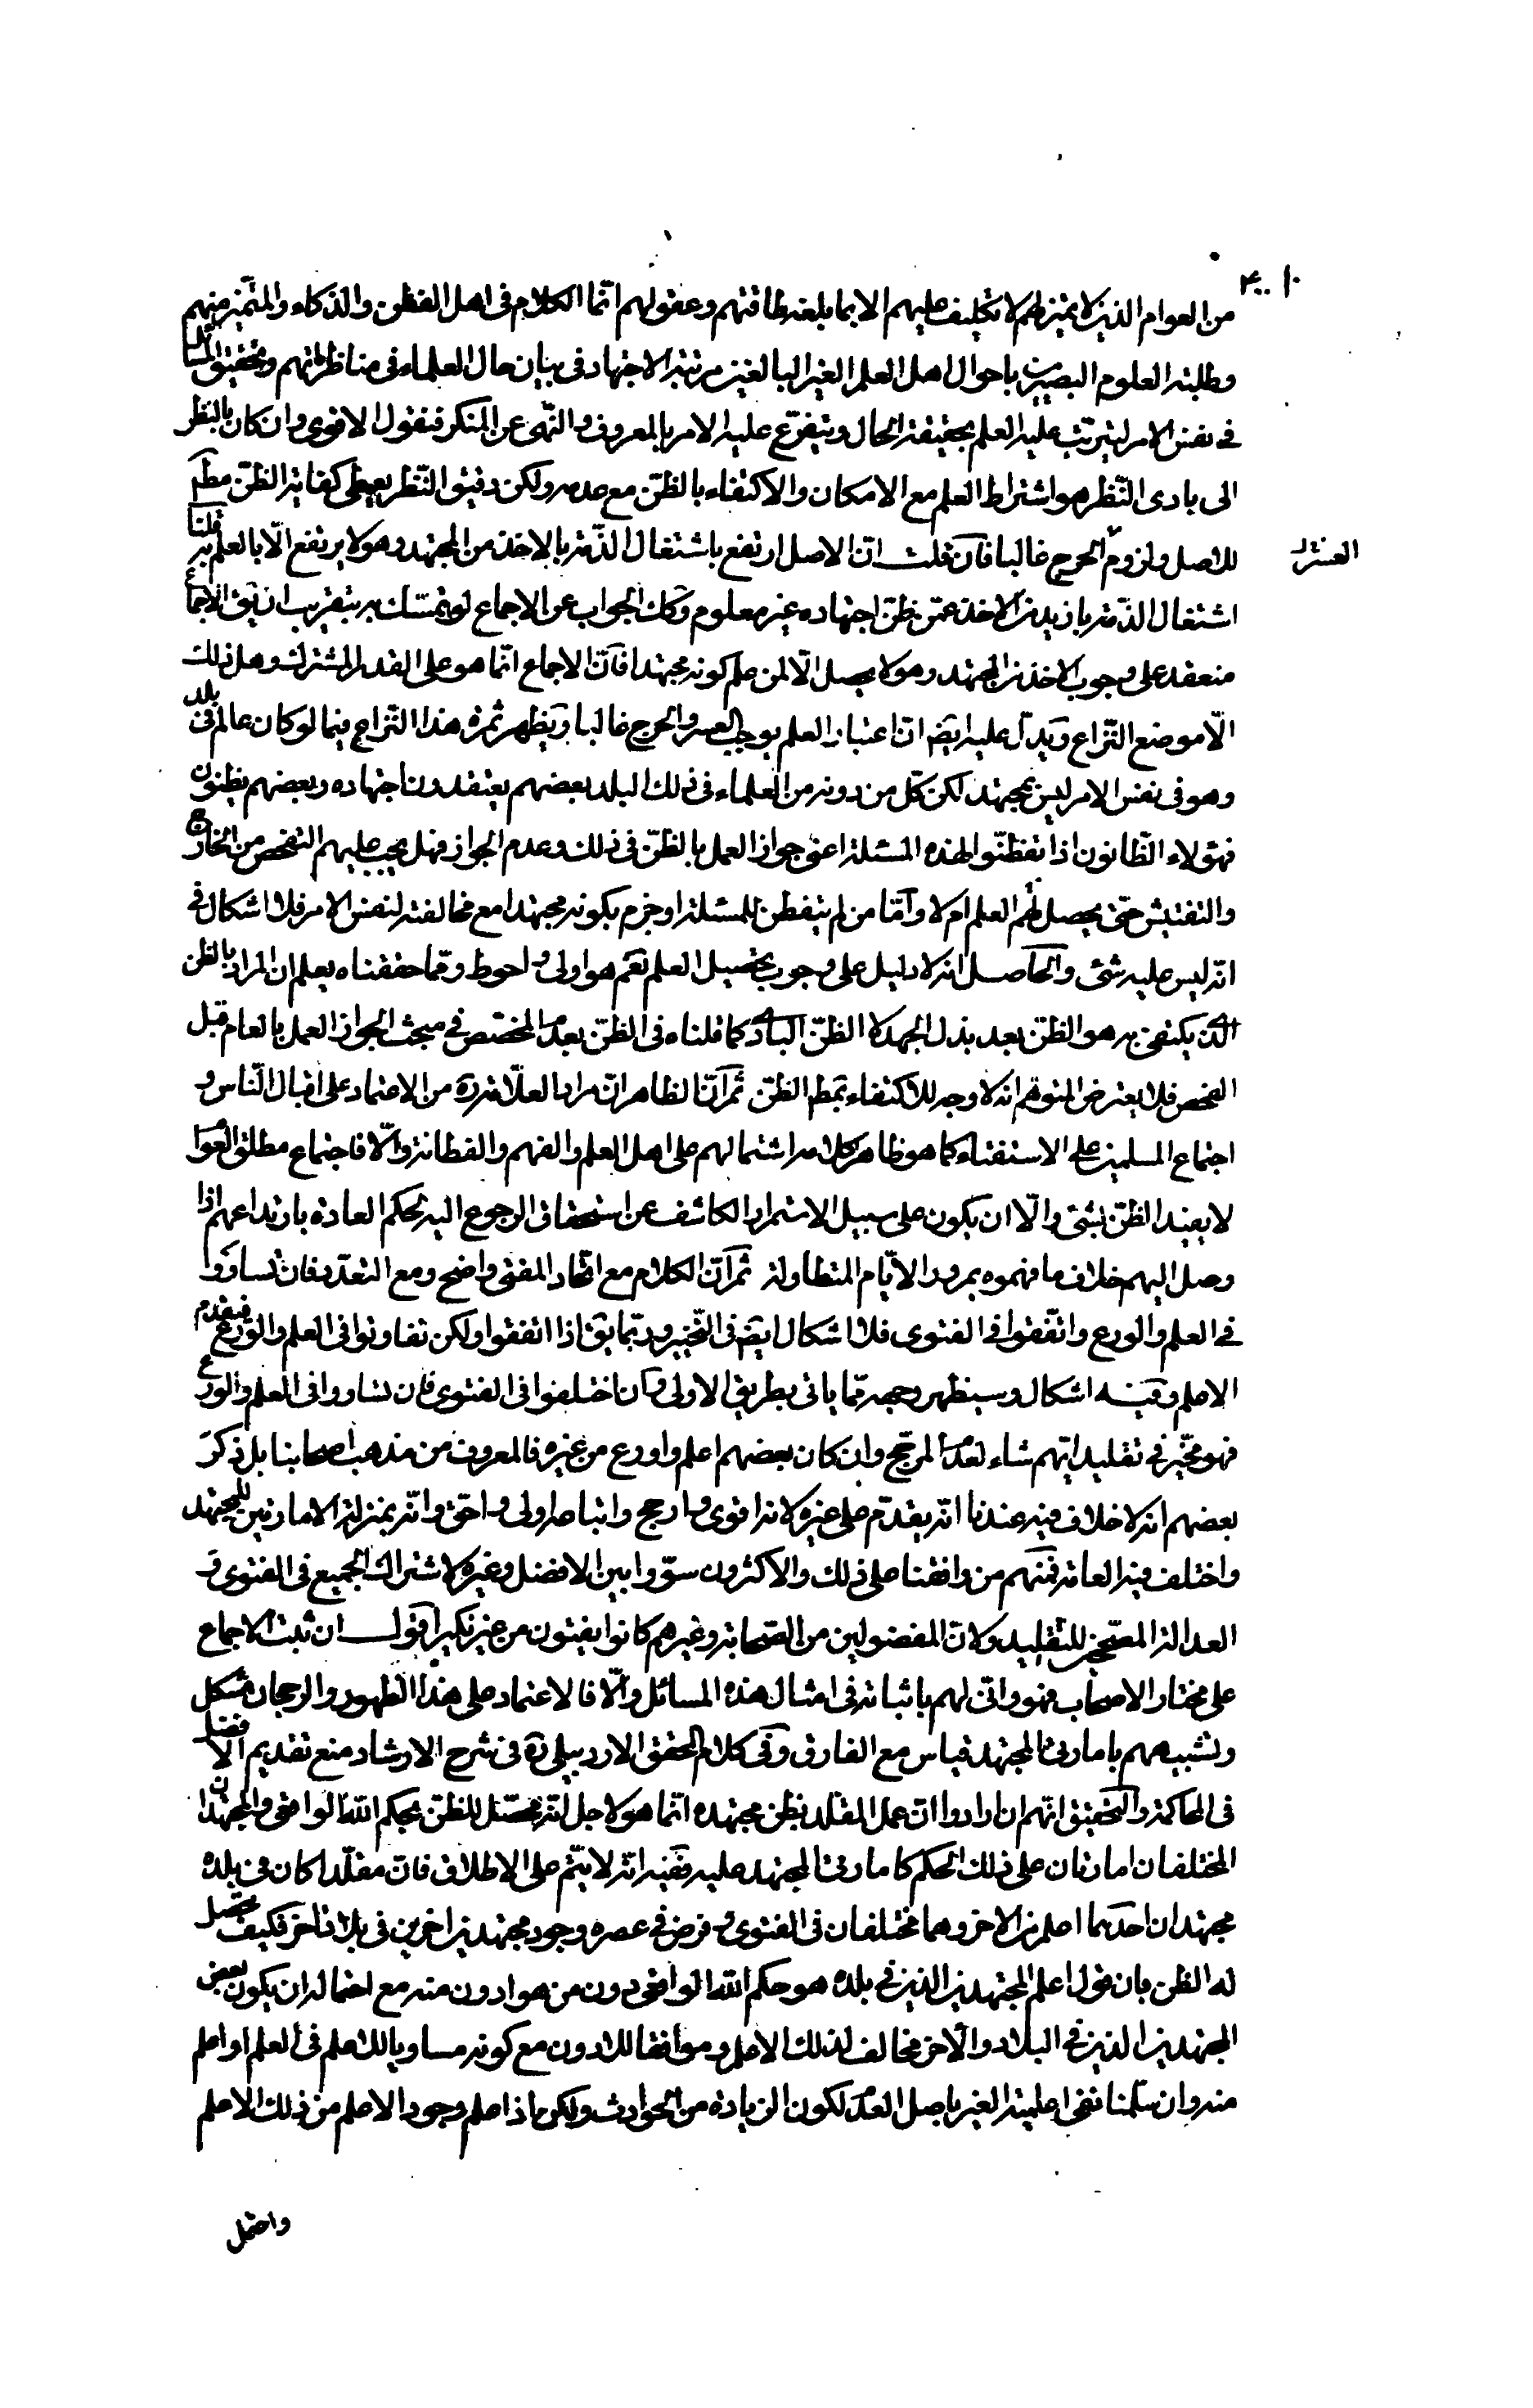 من العوام الذين لا تميز لهم لا تكليف عليهم الا بما بلغه طاقتهم وعقولهم انّما الكلام فى اهل الفطن والذكاء والمتميّز منهم
وطلبة العلوم البصيرين باحوال اهل العلم الغير البالغين مرتبة الاجتهاد فى بيان حال العلماء فى مناظراتهم وتحقيق المسائل
فى نفس الامر ليترتب عليه العلم بحقيقة الحال ويتفرّع عليه الامر بالمعروف والنّهى عن المنكر فنقول الاقوى وان كان بالنظر
الى بادى النّظر هو اشتراط العلم مع الامكان والاكتفاء بالظنّ مع عدمه ولكن دقيق النّظر يعطى كفاية الظنّ مطم
للاصل ولزوم الحرج غالبا فآن قلت انّ الاصل ارتفع باشتغال الذّمة بالاخذ من المجتهد وهو لا يرتفع الّا بالعلم به قلنا
اشتغال الذّمة بازيد من الاخذ عمّن ظنّ اجتهاده غير معلوم وكك الجواب عن الاجماع لو تمسّك به بتقريب ان يق الاجماع
منعقد على وجوب الاخذ من المجتهد وهو لا يحصل الّا لمن علم كونه مجتهدا فانّ الاجماع انّما هو على القدر المشترك وهل ذلك
الّا موضع النّزاع ويدلّ عليه ايضا انّ اعتبار العلم يوجب العسر والحرج غالبا ويظهر ثمرة هذا النّزاع فيما لو كان عالم فى بلد
وهو فى نفس الامر ليس بمجتهد لكن كلّ من دونه من العلماء فى ذلك البلد بعضهم يعتقدون اجتهاده وبعضهم يظنون
فهؤلاء الظّانون اذا تفطّنوا لهذه المسئلة اعنى جواز العمل بالظنّ فى ذلك وعدم الجواز فهل يجب عليهم التفحص من الخارج
والتفتيش حتّى يحصل لهم العلم ام لا وآمّا من لم يتفطن للمسئلة او جزم بكونه مجتهدا مع مخالفته لنفس الامر فلا اشكال فى
انّه ليس عليه شئ والحآصل انه لا دليل على وجوب تحصيل العلم نعم هو اولى واحوط وممّا حققناه يعلم ان المراد بالظن
الذى يكتفى به هو الظنّ بعد بذل الجهد لا الظنّ البادى كما قلناه فى الظنّ بعدم المخصّص فى مبحث الجواز العمل بالعام قبل
الفحص فلا يعترض المتوهّم انه لا وجه للاكتفاء بمطم الظنّ ثمّ آنّ الظاهر انّ مراد العلّامة ره من الاعتماد على اقبال النّاس و
اجتماع المسلمين على الاستفتاء كما هو ظاهر كلامه اشتمالهم على اهل العلم والفهم والفطانة والّا فاجتماع مطلق العوام
لا يفيد الظنّ بشئ والّا ان يكون على سبيل الاستمرار الكاشف عن استحقاق الرجوع اليه بحكم العادة بارتداعهم اذا
وصل اليهم خلاف ما فهموه بمرور الايّام المتطاولة ثمّ آنّ الكلام مع اتحاد المفتى واضح ومع التعدّد فان تساووا
فى العلم والورع واتّفقوا فى الفتوى فلا اشكال ايضا فى التّخيير وربّما يق اذا اتفقوا ولكن تفاوتوا فى العلم والورع فيقدم
الاعلم وفيه اشكال وسيظهر وجهه ممّا ياتى بطريق الاولى وان اختلفوا فى الفتوى فان تساووا فى العلم والورع
فهو مخيّر فى تقليد ايّهم شاء لعدم المرجّح وان كان بعضهم اعلم واورع من غيره فالمعروف من مذهب اصحابنا بل ذكر
بعضهم انه لا خلاف فيه عندنا انّه يقدّم على غيره لانه اقوى وارجح واتباعه اولى واحقّ وانّه بمنزلة الامارتين للمجتهد
واختلف فيه العامّة فمنهم من وافقنا على ذلك والاكثرون سوّوا بين الافضل وغيره لاشتراك الجميع فى الفتوى و
العدالة المصحّحين للتقليد ولانّ المفضولين من الصّحابة وغيرهم كانوا يفتون من غير نكير آقول ان ثبت الاجماع
على مختار الاصحاب فهو وانّى لهم باثباته فى امثال هذه المسائل والّا فالاعتماد على هذا الظهور والرجحان مشكل
وتشبيههم بامارتى المجتهد قياس مع الفارق وفى كلام المحقق الاردبيلى ره فى شرح الارشاد منع تقديم الافضل
فى المحاكمة والتّحقيق انّهم ان ارادوا انّ عمل المقلد بظن مجتهده انّما هو لاجل انّه محصّل للظنّ بحكم اللّه الواقعى والمجتهدان
المختلفان امارتان على ذلك الحكم كامارتى المجتهد عليه ففيه انّه لا يتمّ على الاطلاق فانّ مقلّدا كان فى بلده
مجتهدان احدهما اعلم من الاخر وهما مختلفان فى الفتوى وفرض فى عصره وجود مجتهدين اخرين فى بلاد اخر فكيف يحصل
له الظن بان قول اعلم المجتهدين الذين فى بلده هو حكم اللّه الواقعى دون من هو ادون منه مع احتماله ان يكون بعض
المجتهدين الذين فى البلاد والآخر مخالف لذلك الاعلم وموافقا للادون مع كونه مساويا للاعلم فى العلم او اعلم
منه وان سلّمنا نفى اعلمية الغير باصل العدم لكون الزيادة من الحوادث ولكن اذا علم وجود الاعلم من ذلك الاعلم
واحتمل